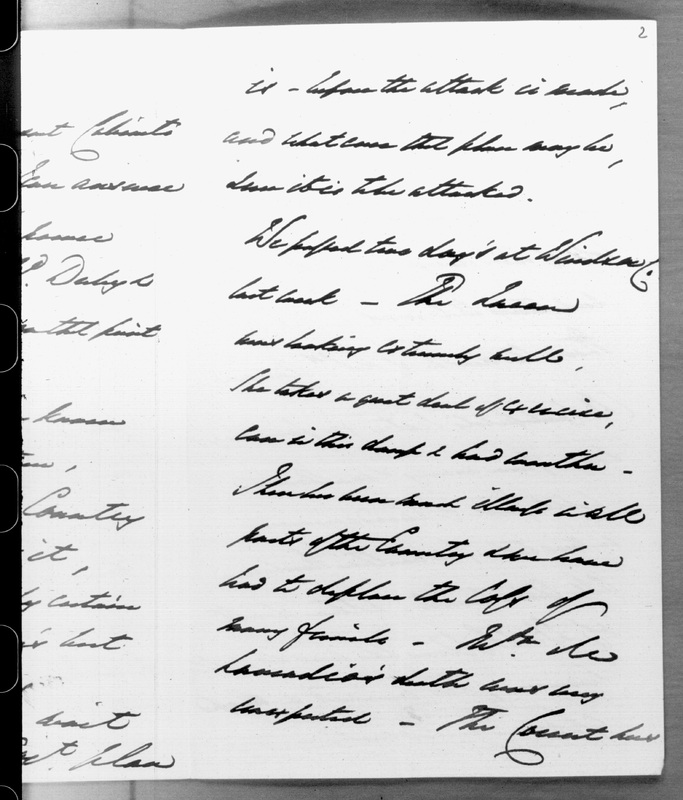 2
Cabinets
answer
house
that point
known
Country
it,
by certain
best
wait
plan
is – before the attack is made,
and what ever that plan may be,
sure it is to be attacked.
We passed two day's at Windsor C.
last week – The Queen
was looking extremely well,
She takes a great deal of exercise,
even in this damp & bad weather –
There has been much illness in all
parts of the Country & we have
had to deplore the loss of
many friends – de
Lavradio's death was very
unexpected – The Count has